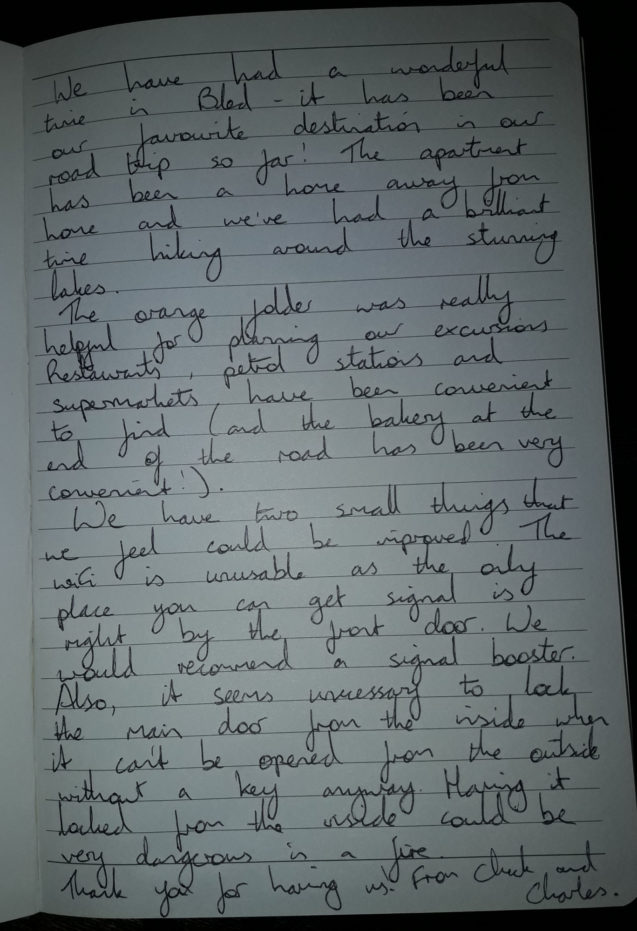 We have had a wonderful
time in Bled - it has been
our favourite destination in our
road trip so far! The apartment
has been a home away from
home and we've had a brilliant
time hiking around the stunning
lakes.
The orange folder was really
helpful for planning our excursions
Restaurants, petrol stations and
supermarkets, have been convenient
to find (and the bakery at the
end of the road has been very
convenient!).
We have two small things that
we feel could be improved. The
wifi is unusable as the only
place you can get signal is
right by the front door. We
would recommend a signal booster.
Also, it seems unnecessary to lock
the main door from the inside when
it can't be opened from the outside
without a key anyway. Having it
locked from the inside could be
very dangerous in a fire.
Thank you for having us! From Chuck and
Charles.